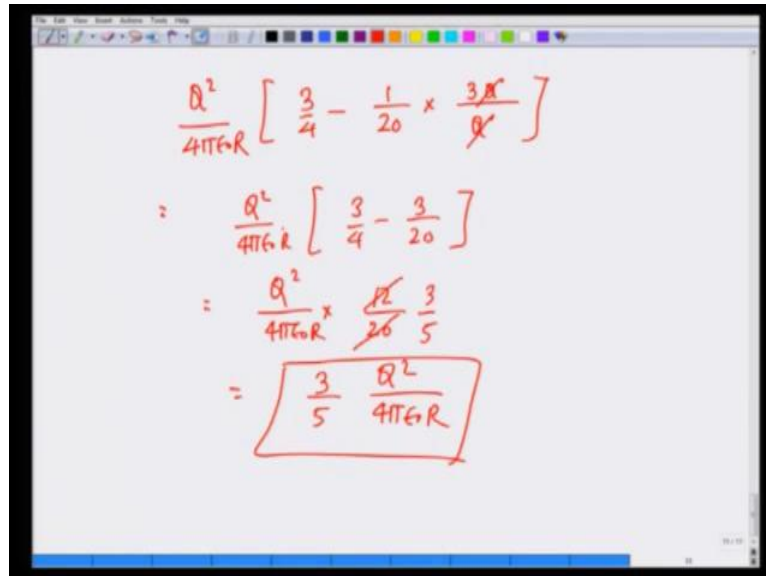 File Edit View Insert Actions Tools Help
Q² / 4πε₀R [ 3/4 − 1/20 × 3Q/Q ]
= Q² / 4πε₀R [ 3/4 − 3/20 ]
= Q² / 4πε₀R × 12/20 3/5
= 3/5 Q² / 4πε₀R